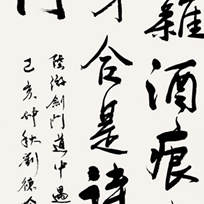 雜酒痕
身合是詩
門
陸游劍門道中遇
己亥仲秋劉德